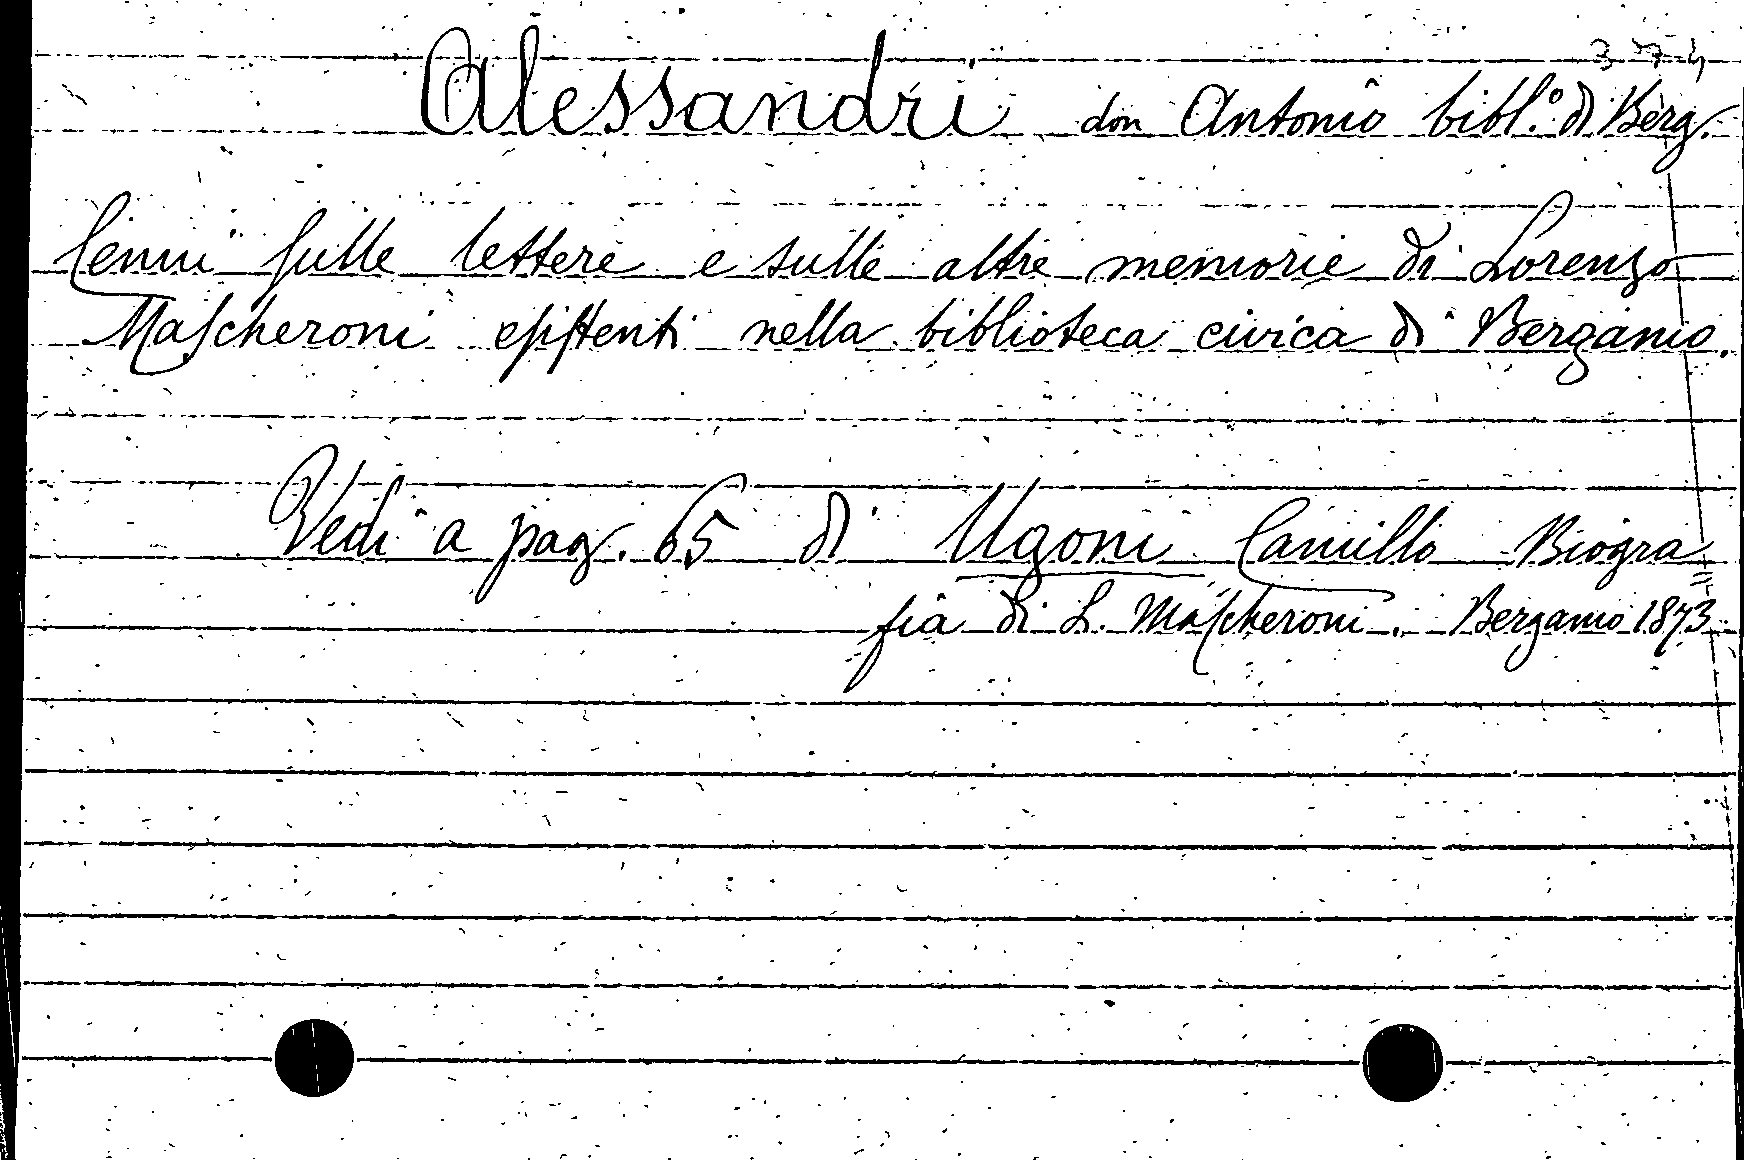 374
Alessandri don Antonio bibl.º di Berg.
Cenni sulle lettere e sulle altre memorie di Lorenzo
Mascheroni esistenti nella biblioteca civica di Bergamo.
Vedi a pag. 65 di Ugoni Camillo Biogra=
fia di L. Mascheroni. Bergamo 1873